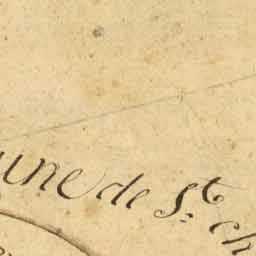 une de S.t ch